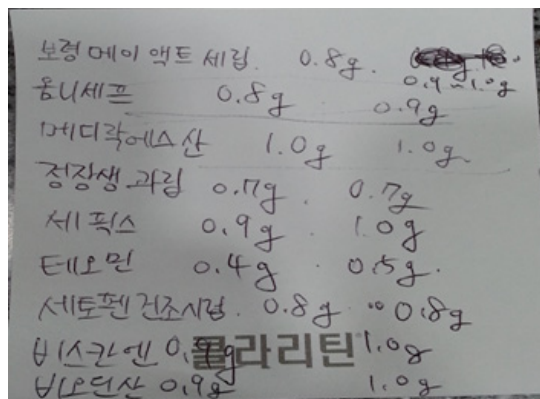 보령메이액트세립. 0.8g.
0.9~1.0g
옴니세프 0.8g 0.9g
메디락에스산 1.0g 1.0g
정장생과립 0.7g. 0.7g
세픽스 0.9g 1.0g
테오민 0.4g 0.5g.
세토펜건조시럽. 0.8g 0.8g
비스칸엔 0.9g 1.0g
클라리틴
비오딘산 0.9g 1.0g